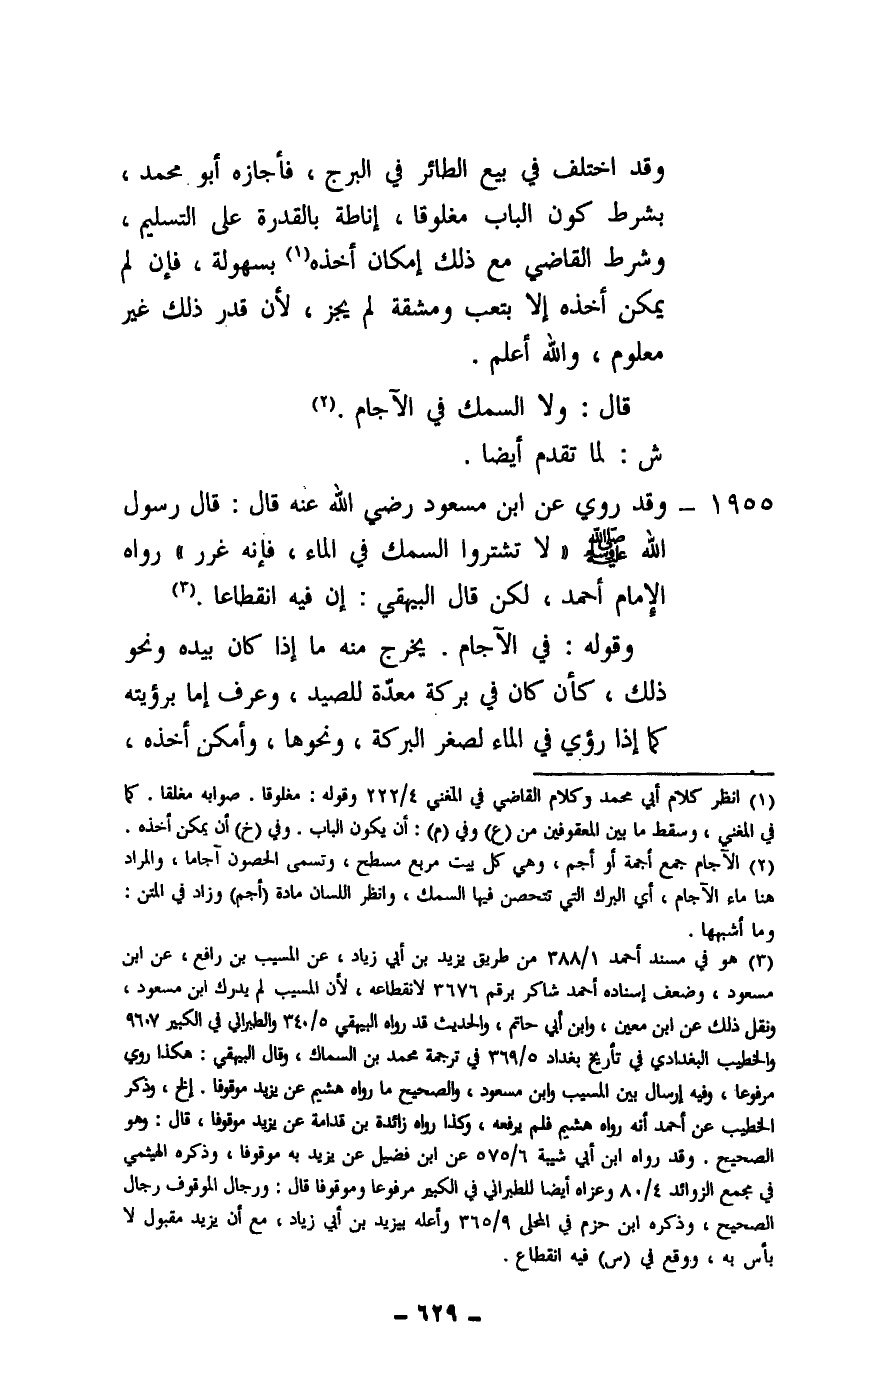 وقد اختلف في بيع الطائر في البرج ، فأجازه أبو محمد ،
بشرط كون الباب مغلوقا ، إناطة بالقدرة على التسليم ،
وشرط القاضي مع ذلك إمكان أخذه(١) بسهولة ، فإن لم
يمكن أخذه إلا بتعب ومشقة لم يجز ، لأن قدر ذلك غير
معلوم ، والله أعلم .
قال : ولا السمك في الآجام .(٢)
ش : لما تقدم أيضا .
١٩٥٥ – وقد روي عن ابن مسعود رضي الله عنه قال : قال رسول
الله ﷺ « لا تشتروا السمك في الماء ، فإنه غرر » رواه
الإمام أحمد ، لكن قال البيهقي : إن فيه انقطاعا .(٣)
وقوله : في الآجام . يخرج منه ما إذا كان بيده ونحو
ذلك ، كأن كان في بركة معدّة للصيد ، وعرف إما برؤيته
كما إذا رؤي في الماء لصغر البركة ، ونحوها ، وأمكن أخذه ،
(١) انظر كلام أبي محمد وكلام القاضي في المغني ٢٢٢/٤ وقوله : مغلوقا . صوابه مغلقا . كما
في المغني ، وسقط ما بين المعقوفين من (ع) وفي (م) : أن يكون الباب . وفي (خ) أن يمكن أخذه .
(٢) الآجام جمع أجمة أو أجم ، وهي كل بيت مربع مسطح ، وتسمى الحصون آجاما ، والمراد
هنا ماء الآجام ، أي البرك التي تتحصن فيها السمك ، وانظر اللسان مادة (أجم) وزاد في المتن :
وما أشبهها .
(٣) هو في مسند أحمد ٣٨٨/١ من طريق يزيد بن أبي زياد ، عن المسيب بن رافع ، عن ابن
مسعود ، وضعف إسناده أحمد شاكر برقم ٣٦٧٦ لانقطاعه ، لأن المسيب لم يدرك ابن مسعود ،
ونقل ذلك عن ابن معين ، وابن أبي حاتم ، والحديث قد رواه البيهقي ٣٤٠/٥ والطبراني في الكبير ٩٦٠٧
والخطيب البغدادي في تأريخ بغداد ٣٦٩/٥ في ترجمة محمد بن السماك ، وقال البيهقي : هكذا روي
مرفوعا ، وفيه إرسال بين المسيب وابن مسعود ، والصحيح ما رواه هشيم عن يزيد موقوفا . إلخ ، وذكر
الخطيب عن أحمد أنه رواه هشيم فلم يرفعه ، وكذا رواه زائدة بن قدامة عن يزيد موقوفا ، قال : وهو
الصحيح . وقد رواه ابن أبي شيبة ٥٧٥/٦ عن ابن فضيل عن يزيد به موقوفا ، وذكره الهيثمي
في مجمع الزوائد ٨٠/٤ وعزاه أيضا للطبراني في الكبير مرفوعا وموقوفا قال : ورجال الموقوف رجال
الصحيح ، وذكره ابن حزم في المحلى ٣٦٥/٩ وأعله بيزيد بن أبي زياد ، مع أن يزيد مقبول لا
بأس به ، ووقع في (س) فيه انقطاع .
– ٦٢٩ –